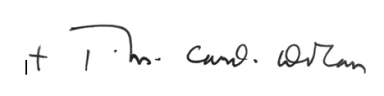 + Tim. Card. Dolan